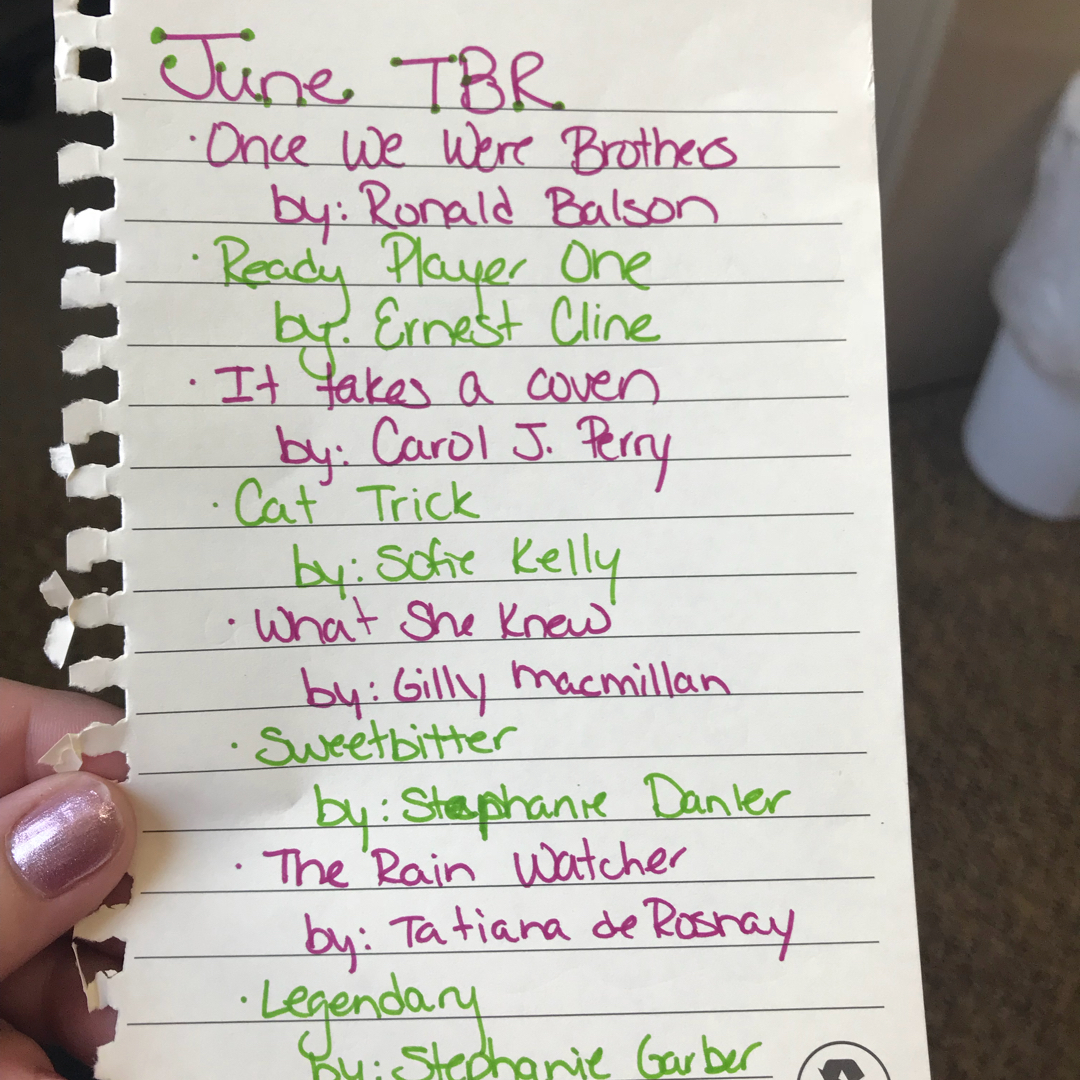 June TBR
· Once We Were Brothers
by: Ronald Balson
· Ready Player One
by: Ernest Cline
· It takes a coven
by: Carol J. Perry
· Cat Trick
by: Sofie Kelly
· What She Knew
by: Gilly Macmillan
· Sweetbitter
by: Stephanie Danler
· The Rain Watcher
by: Tatiana de Rosnay
· Legendary
by: Stephanie Garber